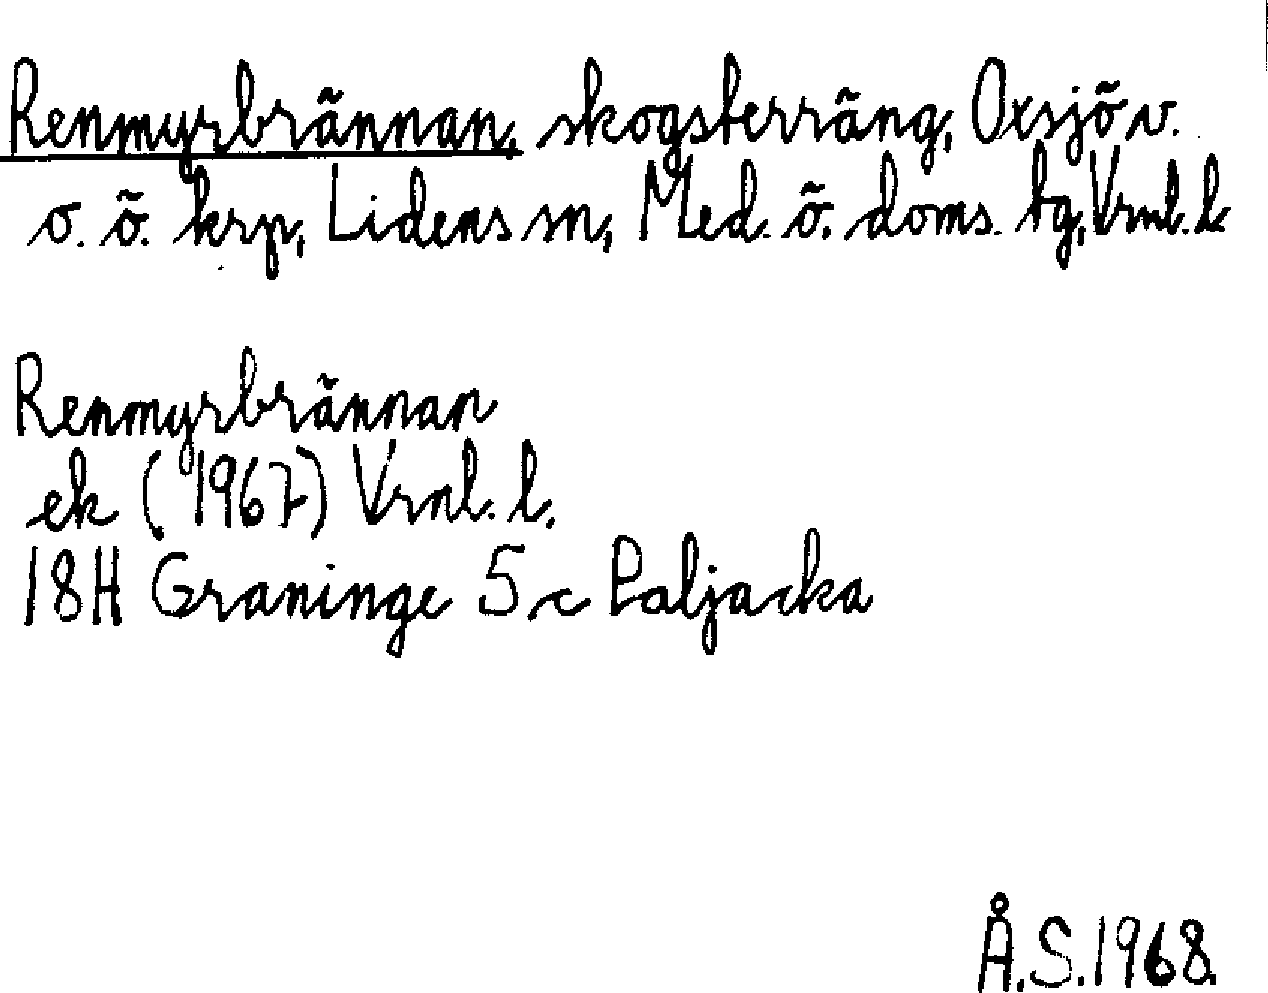 Renmyrbrännan, skogsterräng, Oxsjö v.
o. ö. krp, Lidens sn, Med. ö. doms. tg, Vrnl. l
Renmyrbrännan
ek (1967) Vrnl. l.
18H Graninge 5 c Paljacka
Å.S.1968.